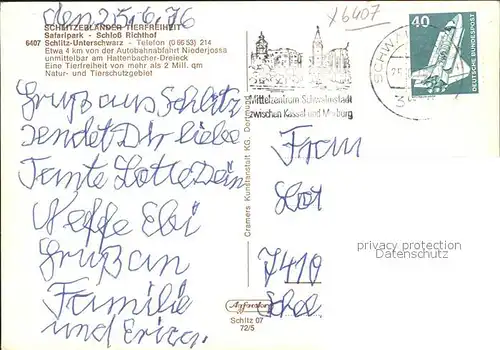 den 25.6.76
SCHLITZERLÄNDER TIERFREIHEIT
Safaripark - Schloß Richthof
6407 Schlitz-Unterschwarz - Telefon (0 66 53) 214
Etwa 4 km von der Autobahnabfahrt Niederjossa
unmittelbar am Hattenbacher-Dreieck
Eine Tierfreiheit von mehr als 2 Mill. qm
Natur- und Tierschutzgebiet
X6407
40
DEUTSCHE BUNDESPOST
SCHWA
Mittelzentrum Schwalmstadt
zwischen Kassel und Marburg
Gruß aus Schlitz
sendet Dir liebe
Tante Lotte Dein
Neffe Ebi
Gruß an
Familie
und Erica.
Cramers Kunstanstalt KG, Dortmund
Frau
Lot
7410
privacy protection
Datenschutz
Agfacolor
Schlitz 07
72/5